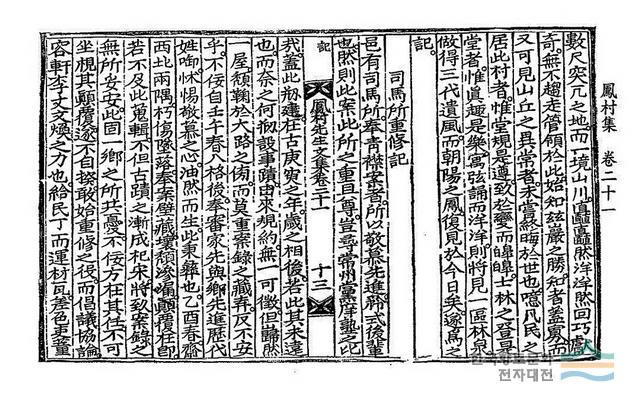 鳳村集 卷二十一
數尺突兀之地而一境山川矗矗然洋洋然回巧處
奇無不趨走管領於此始知玆巖之勝知者蓋寡而
又可見山丘之異常者未嘗終晦於世也噫凡民之
居此村者惟堂規是遵致於變而皥皥士林之登是
堂者惟眞趣是樂寓弦誦而洋洋則將見一區林泉
做得三代遺風而朝陽之鳳復見於今日矣遂爲之
記
司馬所重修記
邑有司馬所奉靑襟案者所以敬慕先進矜式後輩
也然則此案此所之重且尊豈尋常州黨庠塾之比
記 鳳村先生文集卷之二十一 十三
哉蓋此剏建在古庚寅之年歲之相後若此其未遠
也而奈之何剏設事蹟由來規約無一可徵但巋然
一屋頹鞠於大路之傍而莫重案錄之藏春及不安
乎不佞自壬午春入格後奉審家先與鄕先進歷代
姓啣怵惕敬慕之心油然而生此秉彝也乙酉春齋
西北兩隅朽傷墜落奉案壁藏壞頹滲漏顚覆在卽
若不及此葺輯不但古蹟之漸成杞宋將致案錄之
無所妥安此固一鄕之所共憂不佞方在其任不可
坐視其顚覆遂不自揆敢始重修之役而倡議協論
容軒李丈文煥之力也給民丁而運材瓦差色吏董
한국향토문화
전자대전